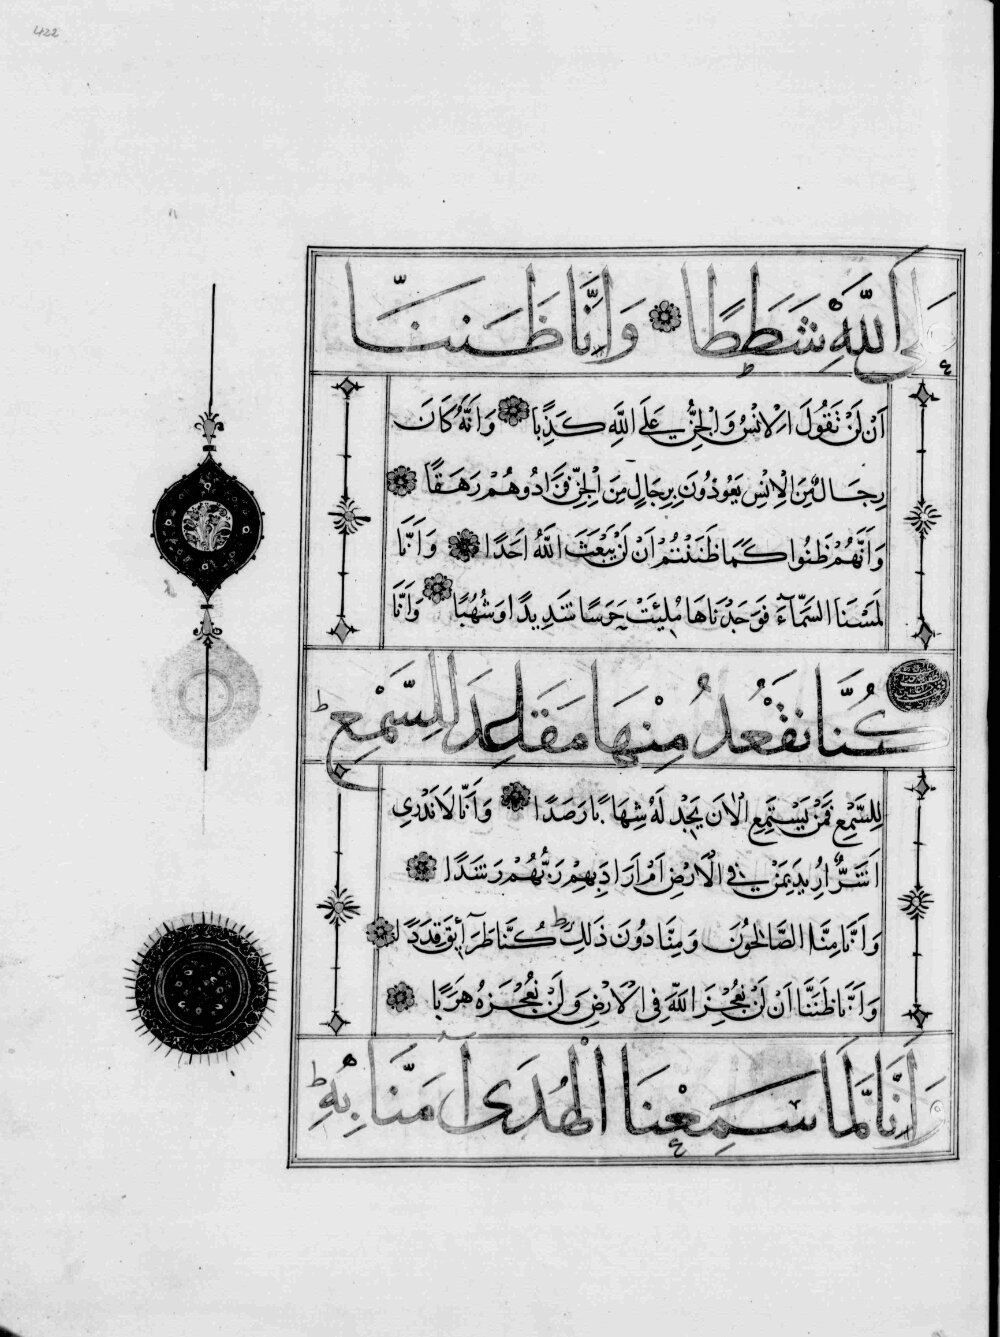 422
عَلَى اللَّهِ شَطَطًا وَاَنَّا ظَنَنَّا
اَنْ لَنْ تَقُولَ الْاِنْسُ وَالْجِنُّ عَلَى اللَّهِ كَذِبًا وَاَنَّهُ كَانَ
رِجَالٌ مِنَ الْاِنْسِ يَعُوذُونَ بِرِجَالٍ مِنَ الْجِنِّ فَزَادُوهُمْ رَهَقًا
وَاَنَّهُمْ ظَنُّوا كَمَا ظَنَنْتُمْ اَنْ لَنْ يَبْعَثَ اللَّهُ اَحَدًا وَاَنَّا
لَمَسْنَا السَّمَآءَ فَوَجَدْنَاهَا مُلِئَتْ حَرَسًا شَدِيدًا وَشُهُبًا وَاَنَّا
كُنَّا نَقْعُدُ مِنْهَا مَقَاعِدَ لِلسَّمْعِ
لِلسَّمْعِ فَمَنْ يَسْتَمِعِ الْاٰنَ يَجِدْ لَهُ شِهَابًا رَصَدًا وَاَنَّا لَا نَدْرِى
اَشَرٌّ اُرِيدَ بِمَنْ فِى الْاَرْضِ اَمْ اَرَادَ بِهِمْ رَبُّهُمْ رَشَدًا
وَاَنَّا مِنَّا الصَّالِحُونَ وَمِنَّا دُونَ ذَلِكَ كُنَّا طَرَآئِقَ قِدَدًا
وَاَنَّا ظَنَنَّا اَنْ لَنْ نُعْجِزَ اللَّهَ فِى الْاَرْضِ وَلَنْ نُعْجِزَهُ هَرَبًا
وَاَنَّا لَمَّا سَمِعْنَا الْهُدَى اٰمَنَّا بِهِ